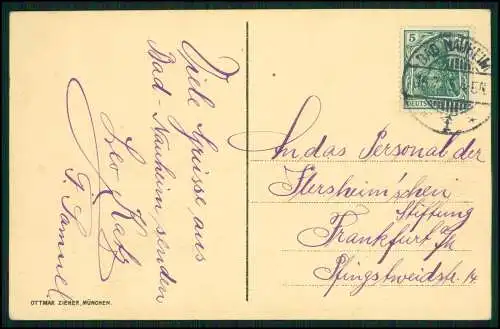 Viele Grüsse aus
Bad-Nauheim senden
Leo Katz
F. Samuel
OTTMAR ZIEHER, MÜNCHEN.
5
BAD NAUHEIM
DEUTSCHES
1
An das Personal der
Flersheim'schen
Stiftung
Frankfurt a/M
Pfingstweidstr. 14